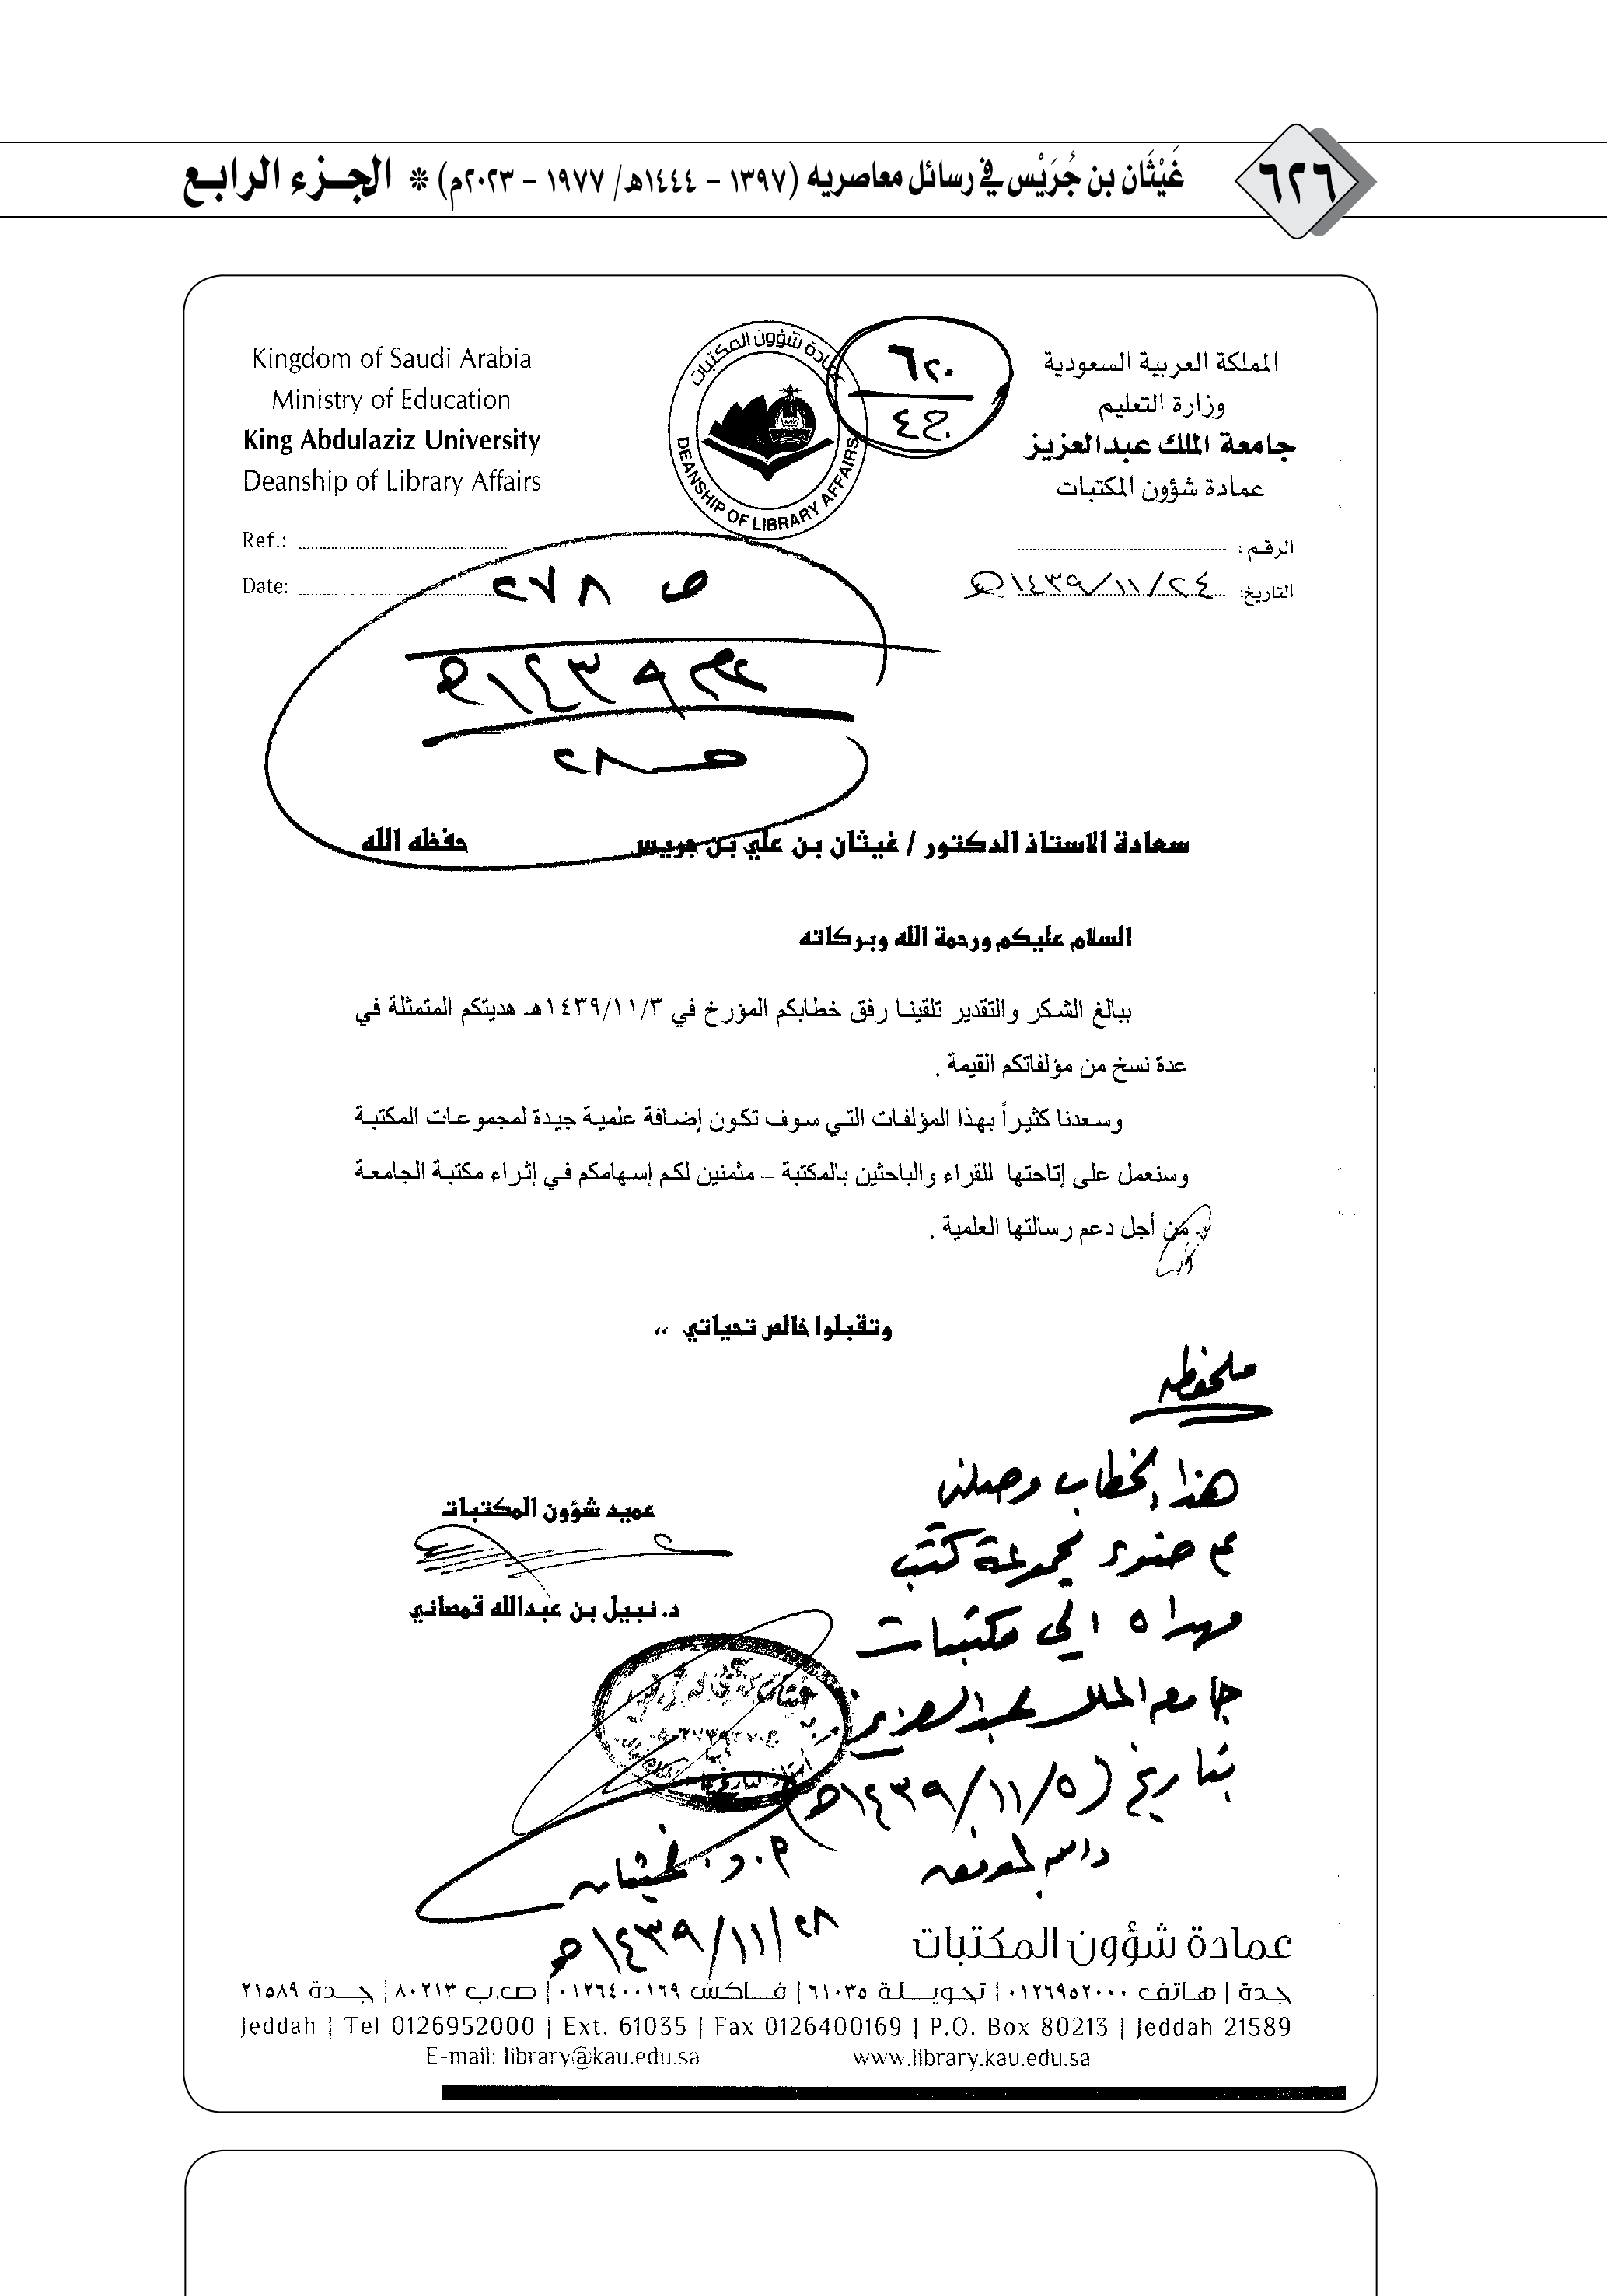 ٦٢٦
غَيْثَان بن جُرَيْس في رسائل معاصريه (١٣٩٧ - ١٤٤٤هـ/ ١٩٧٧ - ٢٠٢٣م) * الجــزء الرابــع
المملكة العربية السعودية
وزارة التعليم
جامعة الملك عبدالعزيز
عمادة شؤون المكتبات
الرقم :
التاريخ: ٢٤/١١/١٤٣٩هـ
عمادة شؤون المكتبات
DEANSHIP OF LIBRARY AFFAIRS
٦٢٠
ج٤
Kingdom of Saudi Arabia
Ministry of Education
King Abdulaziz University
Deanship of Library Affairs
Ref.:
Date:
ص ٢٧٨
١٤٣٩هـ
٢٨
سعادة الاستاذ الدكتور / غيثان بن علي بن جريس حفظه الله
السلام عليكم ورحمة الله وبركاته
ببالغ الشكر والتقدير تلقينا رفق خطابكم المؤرخ في ١٤٣٩/١١/٣هـ هديتكم المتمثلة في
عدة نسخ من مؤلفاتكم القيمة .
وسعدنا كثيراً بهذا المؤلفات التي سوف تكون إضافة علمية جيدة لمجموعات المكتبة
وسنعمل على إتاحتها للقراء والباحثين بالمكتبة – مثمنين لكم إسهامكم في إثراء مكتبة الجامعة
من أجل دعم رسالتها العلمية .
وتقبلوا خالص تحياتي ،،
عميد شؤون المكتبات
د. نبيل بن عبدالله قمصاني
ملحوظه
هذا الخطاب وصلنا
مجموعة كتب
مهداه الى مكتبات
جامعه الملك عبدالعزيز
بتاريخ (٥/١١/١٤٣٩هـ)
والله الموفق
أ.د. غيثان
٢٨/١١/١٤٣٩هـ
عمادة شؤون المكتبات
جدة | هاتف ٠١٢٦٩٥٢٠٠٠ | تحويـلـة ٦١٠٣٥ | فـاكس ٠١٢٦٤٠٠١٦٩ | ص.ب ٨٠٢١٣ | جـدة ٢١٥٨٩
Jeddah | Tel 0126952000 | Ext. 61035 | Fax 0126400169 | P.O. Box 80213 | Jeddah 21589
E-mail: library@kau.edu.sa www.library.kau.edu.sa